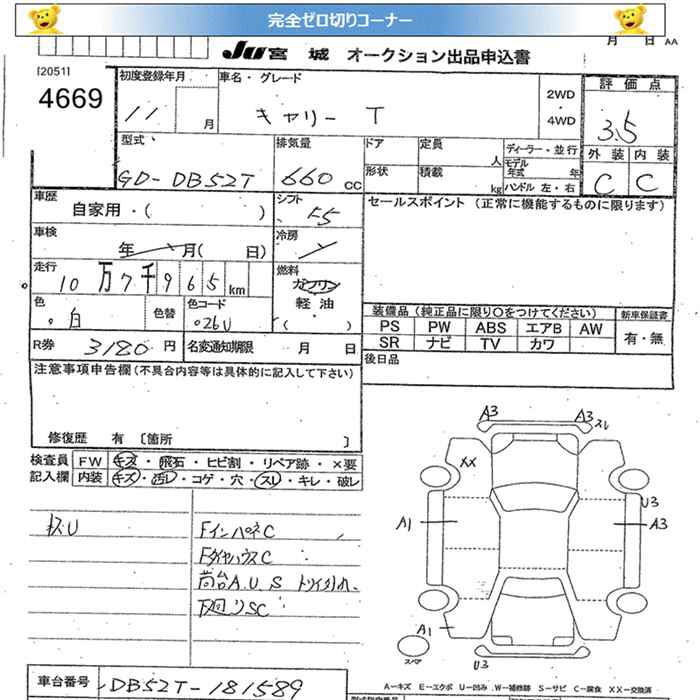 完全ゼロ切りコーナー
Ju 宮城 オークション出品申込書
月 日 AA
[2051]
4669
初度登録年月 車名・グレード
11 月 キャリー T
2WD
・
4WD
評価点
3.5
外装 内装
C C
型式 排気量 ドア 定員 人 ディーラー・並行
GD-DB52T 660 CC 形状 積載 kg モデル年式 年
ハンドル 左・右
車歴 自家用・( ) シフト F5
セールスポイント (正常に機能するものに限ります)
車検 年 月( 日) 冷房
走行 10万7千965km
燃料 ガソリン
軽油
( )
色 白 色替 色コード 26U
装備品 (純正品に限り○をつけてください) 新車保証書
PS PW ABS エアB AW 有・無
SR ナビ TV カワ
R券 3180 円 名変通知期限 月 日
後日品
注意事項申告欄 (不具合内容等は具体的に記入して下さい)
修復歴 有 〔箇所 〕
検査員 FW キズ・飛石・ヒビ割・リペア跡・×要
記入欄 内装 キズ・汚レ・コゲ・穴・スレ・キレ・破レ
キズU
FインパネC
FタイヤハウスC
荷台A.U.S トソイタハれ
下廻りSC
A3 A3 スレ
XX
U3
A1 A3
A1
スペア
U3
車台番号 DB52T-181589
A-キズ E-エクボ U-凹み W-補修跡 S-サビ C-腐食 XX-交換済